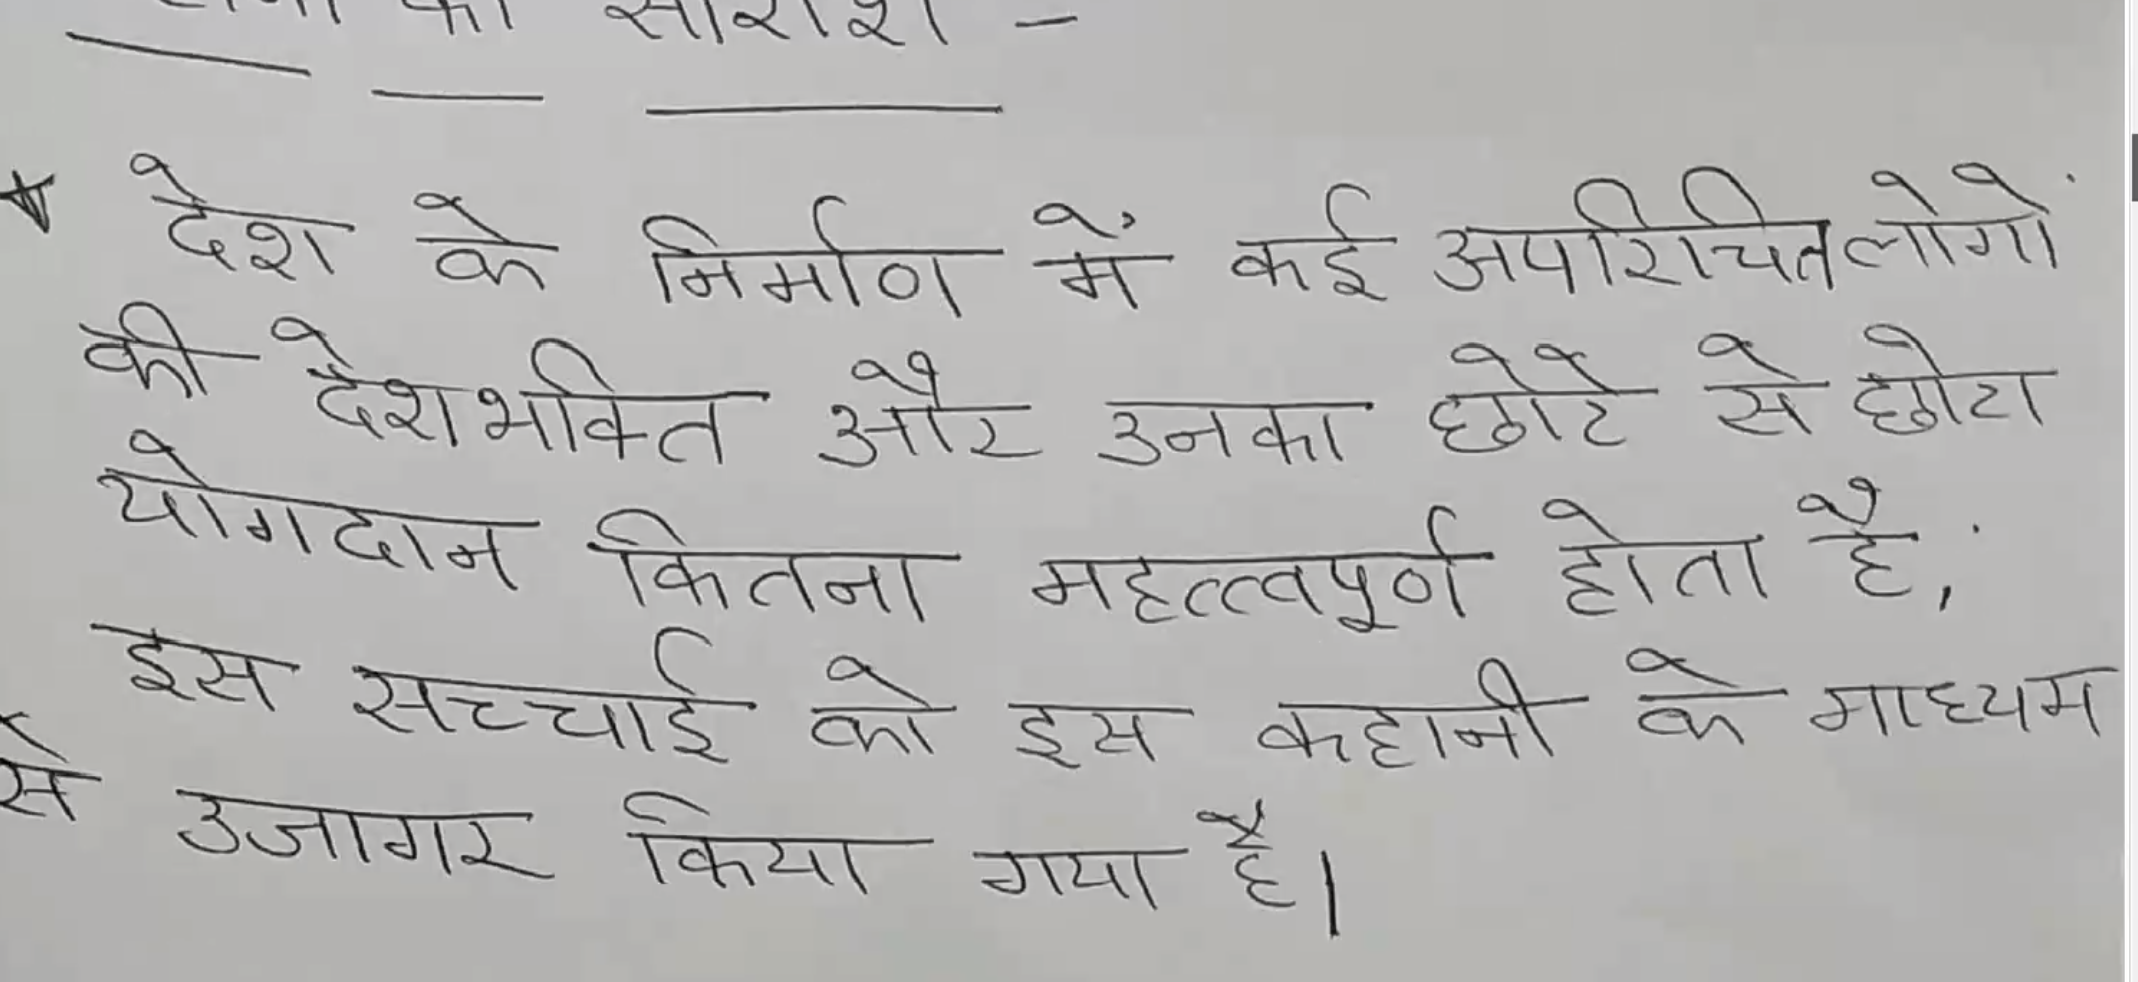 का सारांश -
* देश के निर्माण में कई अपरिचित लोगों
की देशभक्ति और उनका छोटे से छोटा
योगदान कितना महत्त्वपूर्ण होता है,
इस सच्चाई को इस कहानी के माध्यम
से उजागर किया गया है।